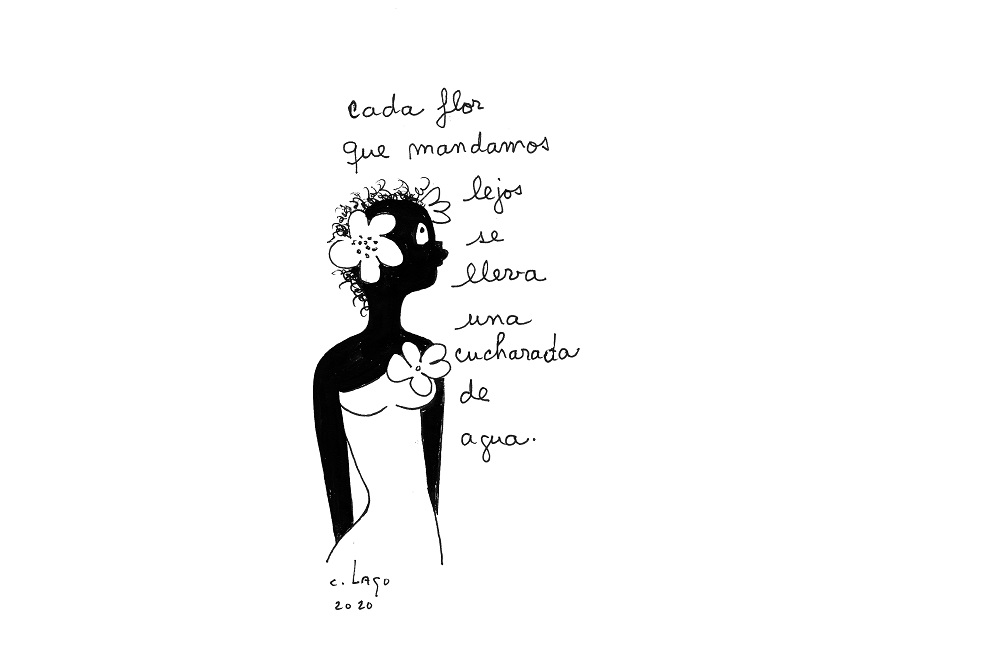 cada flor
que mandamos
lejos
se
lleva
una
cucharada
de
agua.
C. Lago
2020